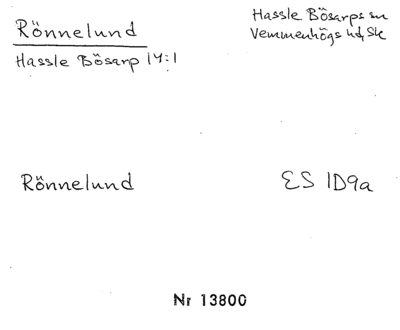 Rönnelund
Hassle Bösarp 14:1
Hassle Bösarps sn
Vemmenhögs hd, Sk
Rönnelund
ES 1D9a
Nr 13800